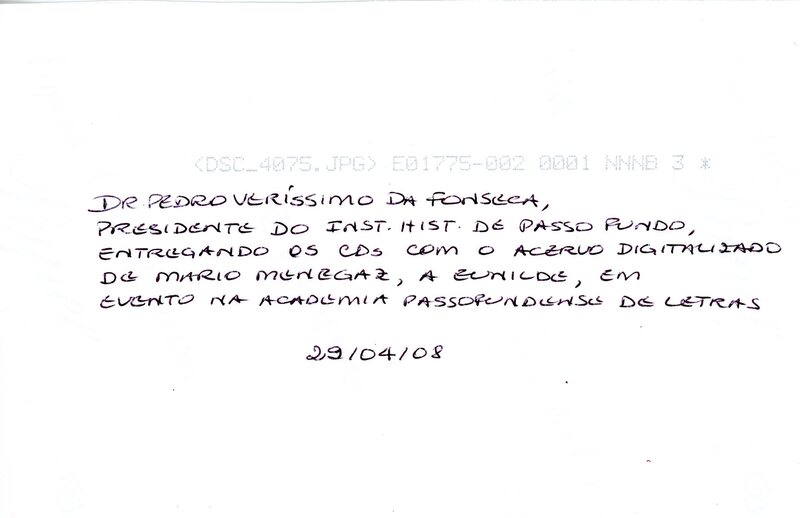 <DSC_4075.JPG> E01775-002 0001 NNNB 3 *
DR PEDRO VERÍSSIMO DA FONSECA,
PRESIDENTE DO INST. HIST. DE PASSO FUNDO,
ENTREGANDO OS CDS COM O ACERVO DIGITALIZADO
DE MARIO MENEGAZ, A EUNILDE, EM
EVENTO NA ACADEMIA PASSOFUNDENSE DE LETRAS
29/04/08